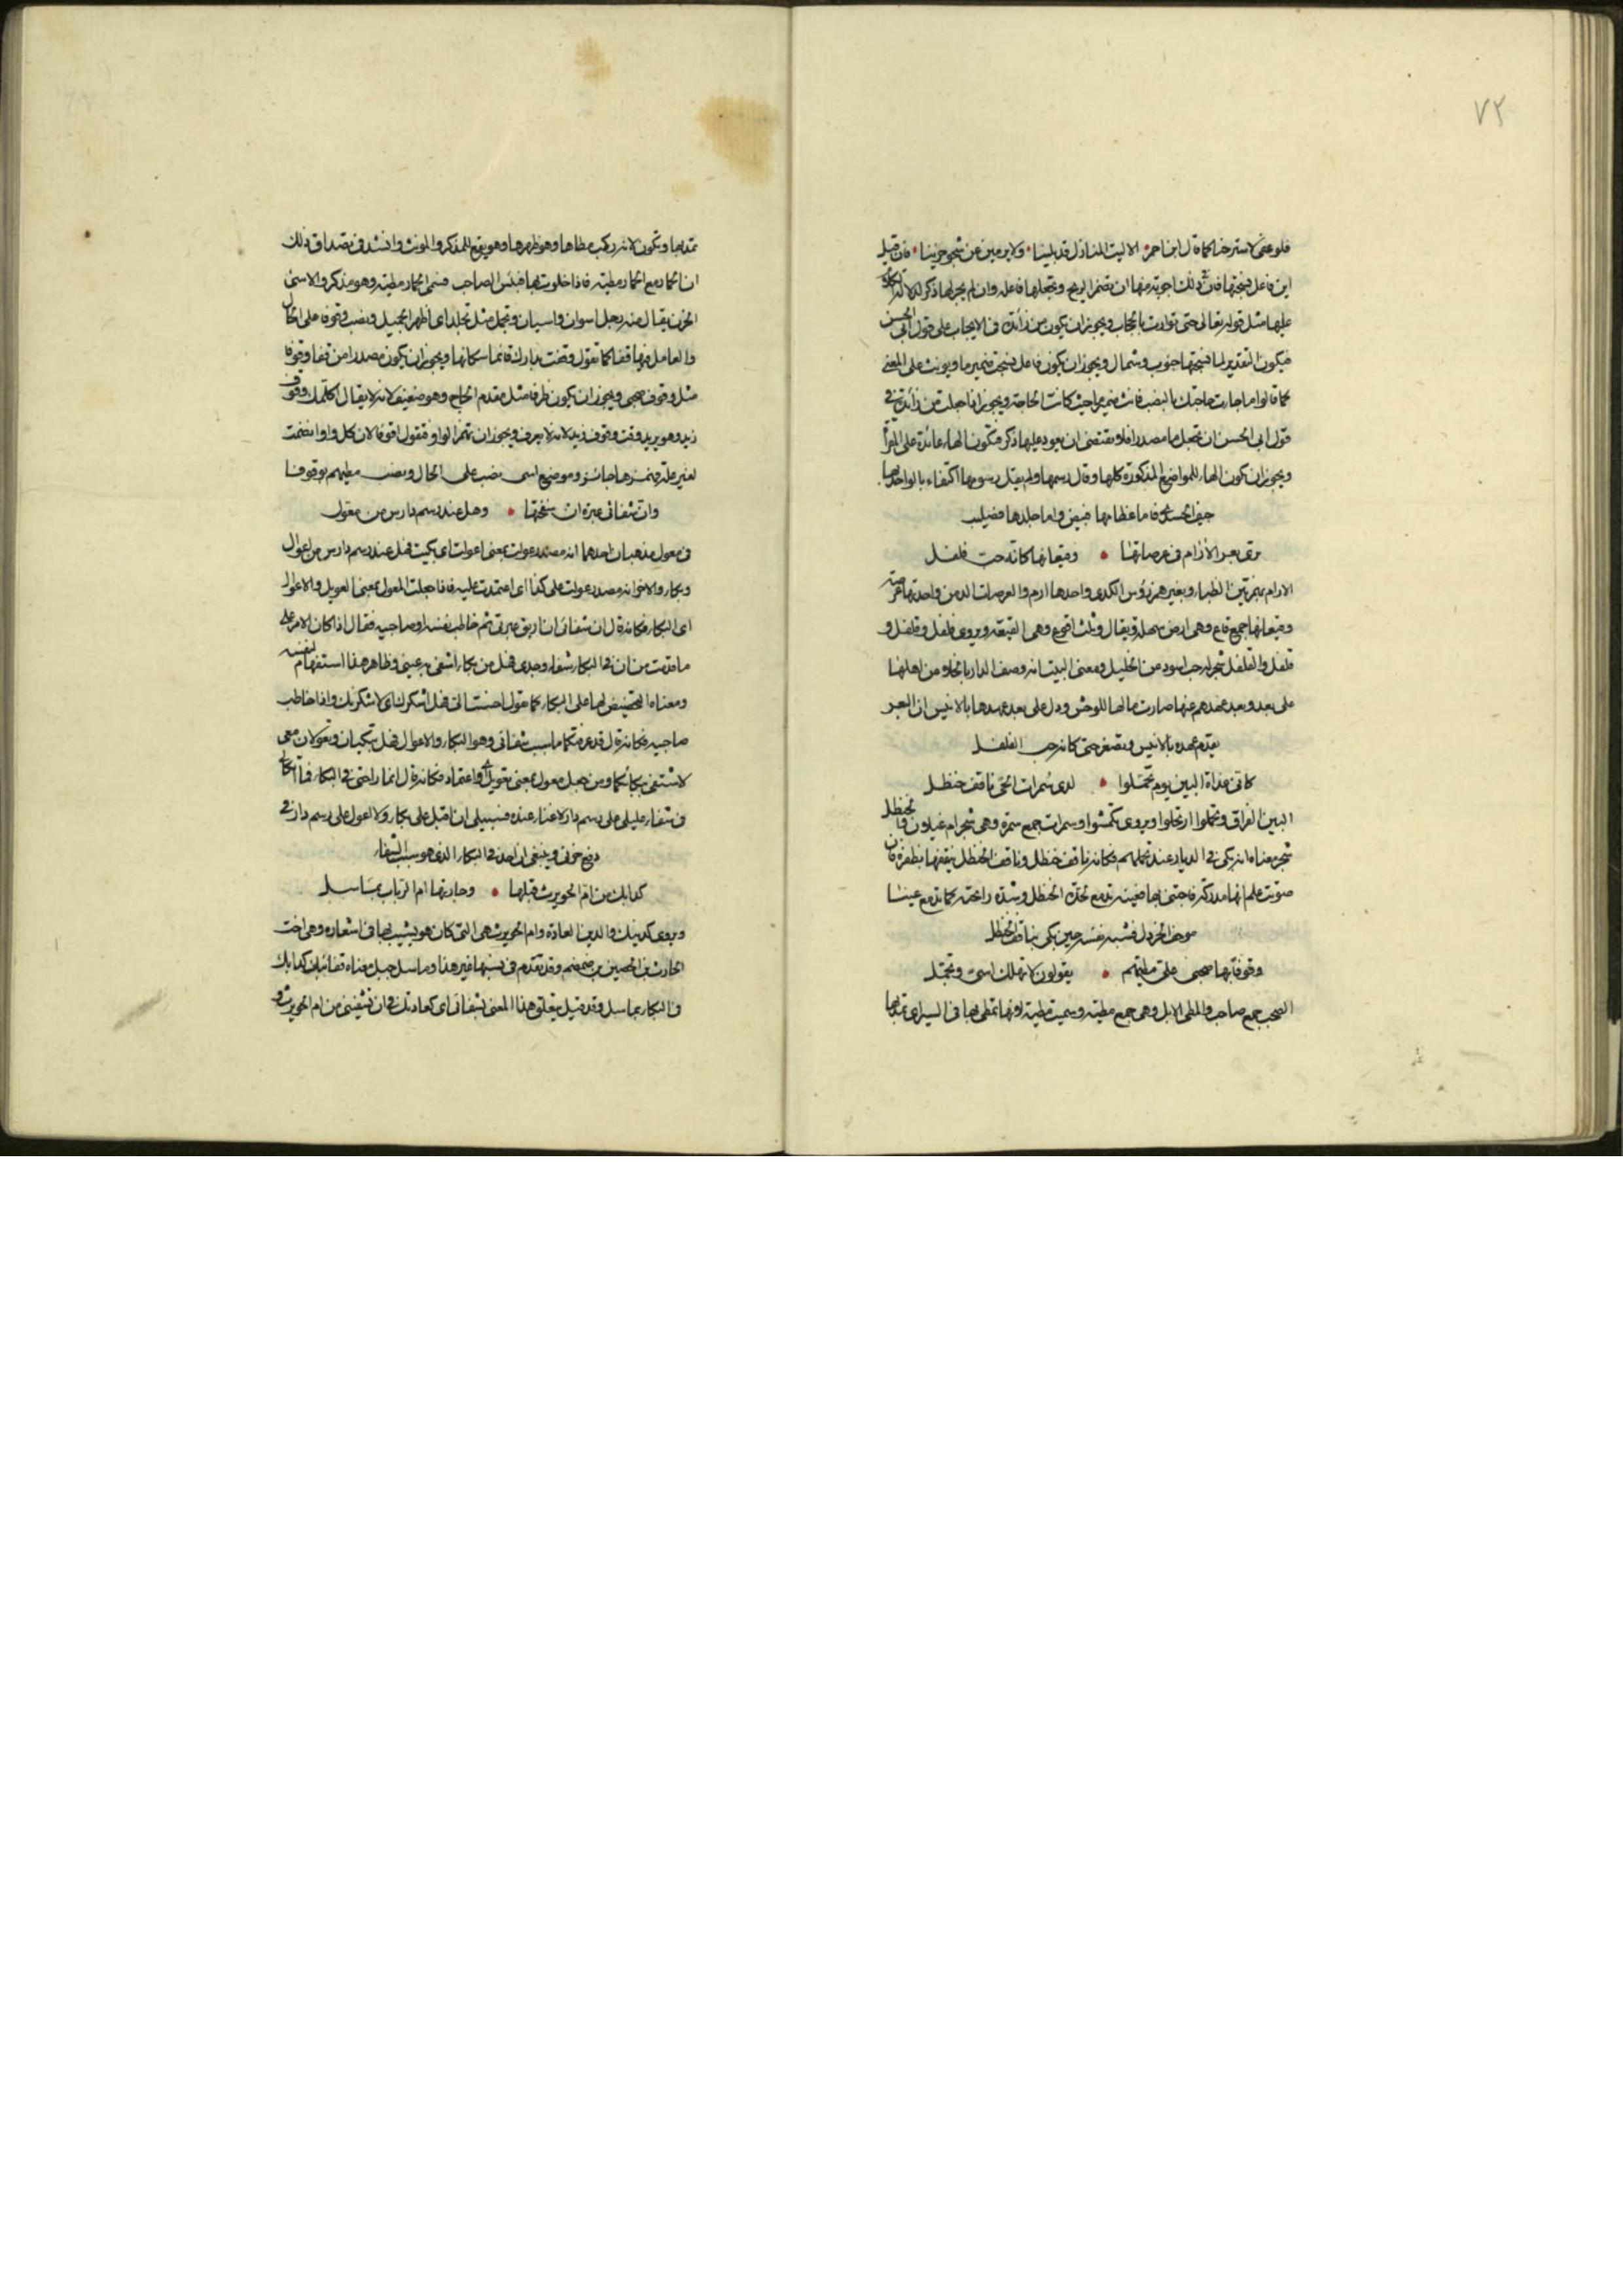 ٧٢
فلو عفى لاسترحنا كما قال ابن احمر الا ليت المنازل قد بلينا ولا يرمين عن شجو حزينا فان قيل
اين فاعل نسجتها فان في ذلك اجوبة منها ان تضمر الريح وتجعلها فاعله وان لم يجر لها ذكر لدلالة الكلام
عليها مثل قوله تعالى حتى توارت بالحجاب ويجوز ان يكون من زائدة في الايجاب على قول ابي الحسن
فيكون التقدير لما نسجتها جنوب وشمال ويجوز ان يكون فاعل نسجت ضمير ما ويونث على المعنى
كما قالوا ما جاءت حاجتك بالنصب فانث ضمير ما حيث كانت الحاجة ويجوز اذا جعلت من زائدة في
قول ابي الحسن ان تجعل ما مصدرا فلا يقتضى ان يعود عليها ذكر فتكون الهاء عائدة على المقراة
ويجوز ان تكون الهاء للمواضع المذكورة كلها وقال رسمها ولم يقل رسومها اكتفاء بالواحد
جيف الحسرى فاما عظامها فبيض واما جلدها فصليب
ترى بعر الأرام في عرصاتها وقيعانها كانه حب فلفل
الارام بهمزتين الظباء وبغير همز رؤس الكدى واحدها ارم والعرصات الدمن واحدتها عرصة
وقيعانها جمع قاع وهي ارض سهلة ويقال وثلث اقوع وهي القيعة ويروى فلفل وقلقل و
قلقل والفلفل شجر له حب اسود عن الخليل ومعنى البيت انه وصف الدار بالخلاء من اهلها
على بعد وبعد عهدهم عنها صارت مالفا للوحش ودل على بعد عهدها بالانيس ان البعر
يقدم عهده بالانيس ويصغر حتى كانه حب الفلفل
كاني غداة البين يوم تحملوا لدى سمرات الحي ناقف حنظل
البين الفراق وتحملوا ارتحلوا ويروى تكمشوا وسمرات جمع سمرة وهي شجر ام غيلان والحنظل
شجر معناه انه بكى في الديار عند تحملهم فكانه ناقف حنظل وناقف الحنظل ينقفها بظفره فان
صوتت علم انها مدركة فاجتنى بها فعينه تدمع لحدة الحنظل وشدة رائحته كما تدمع عينا
موخف الخردل فشبه نفسه حين بكى بناقف الحنظل
وقوفا بها صحبي علي مطيهم يقولون لا تهلك اسى وتجمل
الصحب جمع صاحب والمطي الابل وهي جمع مطية وسميت مطية لانها تمطى بها في السير اى تمد بها
تمد بها وتكون لانه ركب مطاها وهو ظهرها وهو يقع للمذكر والمونث وانشد في تصداق ذلك
ان الحمار مع الحمار مطية فاذا خلوت بها فبئس الصاحب فسمى الحمار مطية وهو مذكر والاسى
الحزن يقال منه رجل اسوان واسيان وتجمل مثل تجلد اى اظهر الجميل ونصب وقوفا على الحال
والعامل فيها قفا كما تقول وقفت بدارك قائما سكانها ويجوز ان يكون مصدرا من قفا وقوفا
مثل وقوف صحبي ويجوز ان يكون ظرفا مثل مقدم الحاج وهو ضعيف لانه لا يقال اكلمك وقوف
زيد وهو يريد وقت وقوف زيد لانه لا يعرف ويجوز ان تهمز الواو فتقول اقوفا لان كل واو انضمت
لغير علة فهمزها جائز وموضع اسى نصب على الحال ونصب مطيهم بوقوفا
وان شفائي عبرة ان سفحتها وهل عند رسم دارس من معول
في معول مذهبان احدهما انه مصدر عولت بمعنى اعولت اى بكيت فهل عند رسم دارس من اعوال
وبكاء والاخر انه مصدر عولت على كذا اى اعتمدت عليه فاذا جعلت المعول بمعنى العويل والاعوال
اى البكاء فكانه قال ان شفائى ان اريق عبرتى ثم خاطب نفسه او صاحبيه فقال اذا كان الامر على
ما قدمت من ان في البكاء شفاء وجدى فهل من بكاء اشفى به عيني وظاهر هذا استفهام لنفسه
ومعناه التحضيض لها على البكاء كما تقول احسنت الى فهل اشكرك اى لاشكرنك واذا خاطب
صاحبيه فكانه قال قد عرفتكما ما سبب شفائى وهو البكاء والاعوال فهل تبكيان وتعولان معى
لاشتفى ببكائكما ومن جعل معول بمعنى تعويل واعتماد فكانه قال انما راحتى في البكاء فما اتكالى
في شفاء غليلى على رسم دار لا غناء عنده فسبيلى ان اقبل على بكاء ولا اعول على رسم دار في
دفع حزنى وينبغى ان اجد في البكاء الذى هو سبب الشفاء
كدابك من ام الحويرث قبلها وجارتها ام الرباب بماسل
ويروى كدينك والدين العادة وام الحويرث هي التى كان هو يشبب بها في اشعاره وهي اخت
الحارث بن الحصين بن ضمضم وقد تقدم في نسبها غير هذا وماسل جبل معناه قفا نبك كدابك
في البكاء بماسل وقد قيل يتعلق هذا المعنى بشفائى اى كعادتك في ان تشتفى من ام الحويرث و